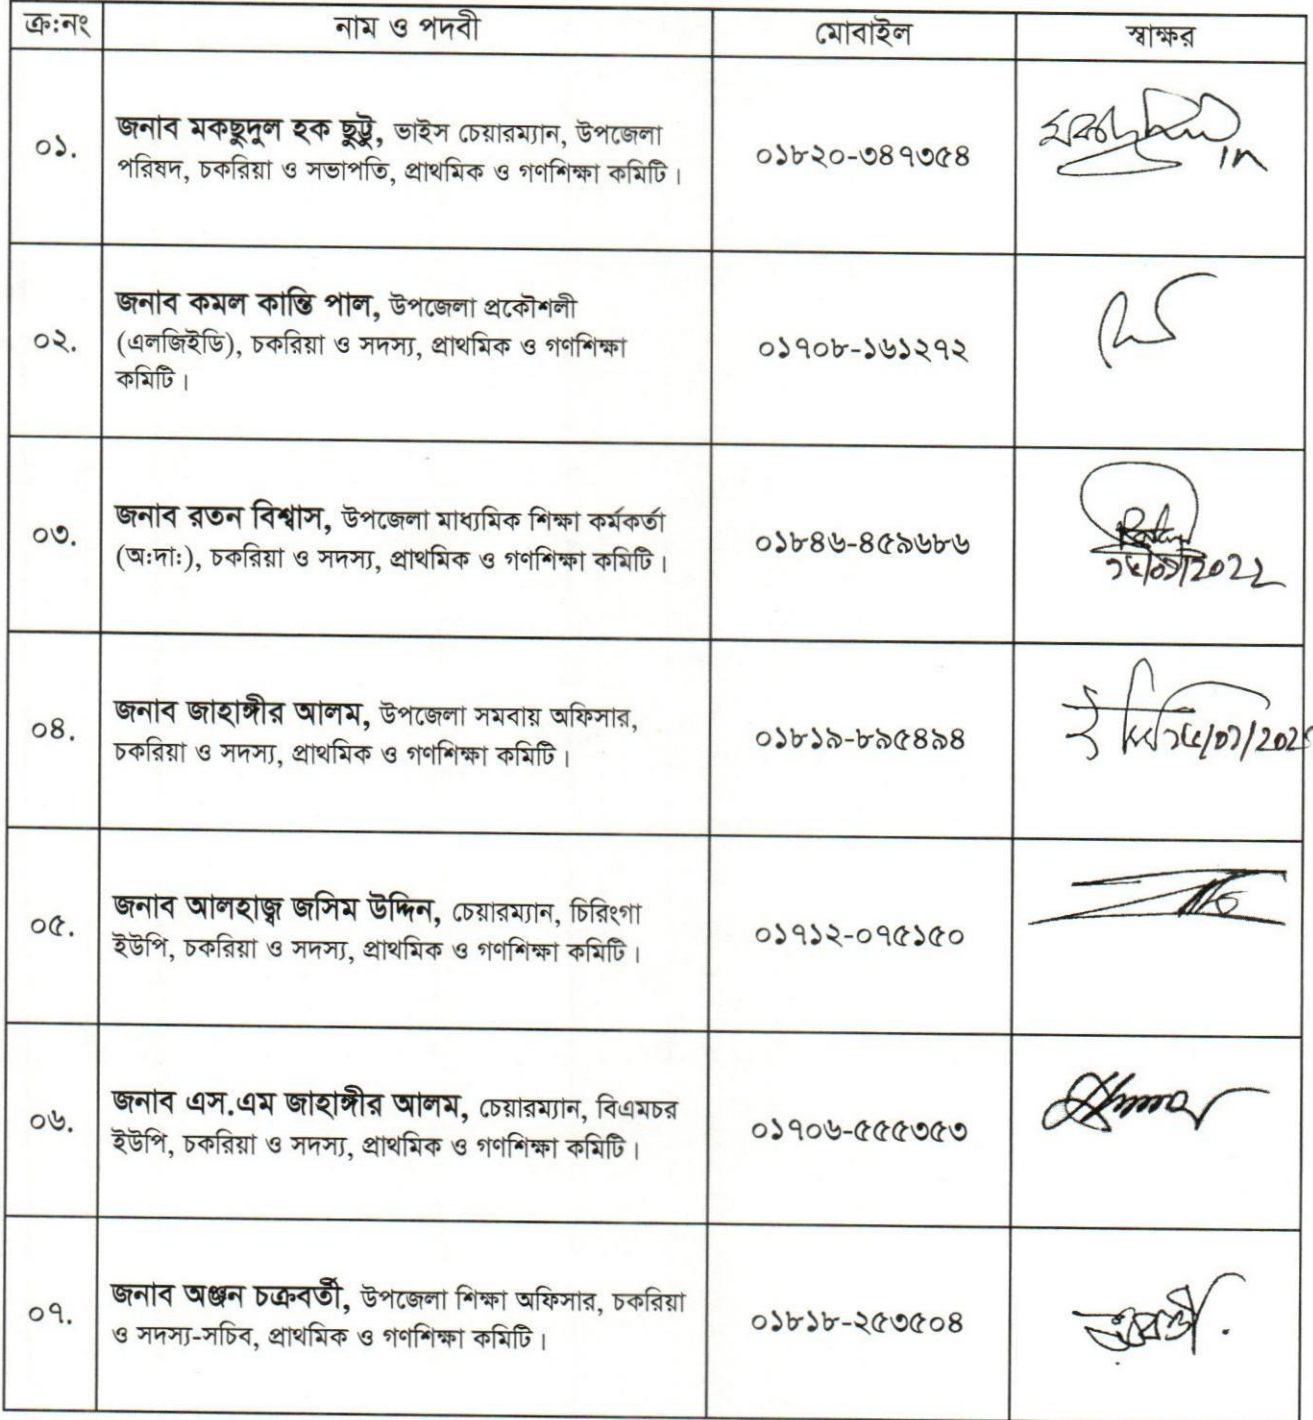 ক্র:নং নাম ও পদবী মোবাইল স্বাক্ষর
জনাব মকছুদুল হক ছুট্টু, ভাইস চেয়ারম্যান, উপজেলা
০১. পরিষদ, চকরিয়া ও সভাপতি, প্রাথমিক ও গণশিক্ষা কমিটি। ০১৮২০-৩৪৭৩৫৪
জনাব কমল কান্তি পাল, উপজেলা প্রকৌশলী
০২. (এলজিইডি), চকরিয়া ও সদস্য, প্রাথমিক ও গণশিক্ষা ০১৭০৮-১৬১২৭২
কমিটি।
জনাব রতন বিশ্বাস, উপজেলা মাধ্যমিক শিক্ষা কর্মকর্তা
০৩. (অ:দা:), চকরিয়া ও সদস্য, প্রাথমিক ও গণশিক্ষা কমিটি। ০১৮৪৬-৪৫৯৬৮৬
জনাব জাহাঙ্গীর আলম, উপজেলা সমবায় অফিসার,
০৪. চকরিয়া ও সদস্য, প্রাথমিক ও গণশিক্ষা কমিটি। ০১৮১৯-৮৯৫৪৯৪
জনাব আলহাজ্ব জসিম উদ্দিন, চেয়ারম্যান, চিরিংগা
০৫. ইউপি, চকরিয়া ও সদস্য, প্রাথমিক ও গণশিক্ষা কমিটি। ০১৭১২-০৭৫১৫০
জনাব এস.এম জাহাঙ্গীর আলম, চেয়ারম্যান, বিএমচর
০৬. ইউপি, চকরিয়া ও সদস্য, প্রাথমিক ও গণশিক্ষা কমিটি। ০১৭০৬-৫৫৫৩৫৩
জনাব অঞ্জন চক্রবর্তী, উপজেলা শিক্ষা অফিসার, চকরিয়া
০৭. ও সদস্য-সচিব, প্রাথমিক ও গণশিক্ষা কমিটি। ০১৮১৮-২৫৩৫০৪